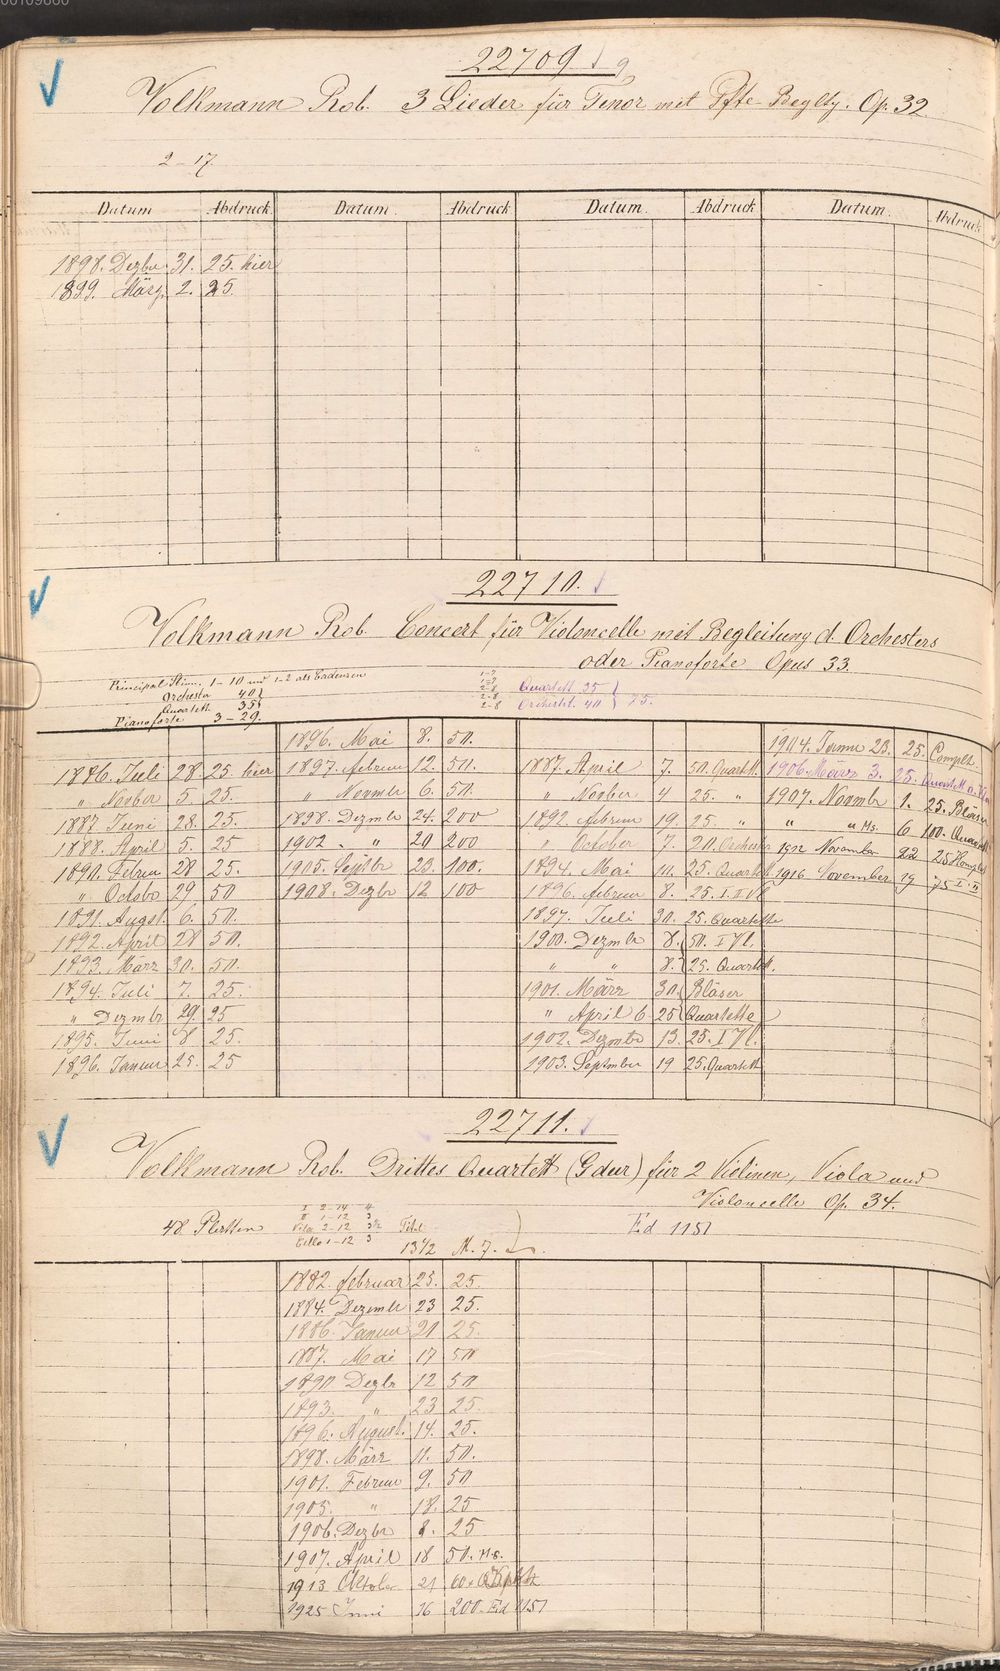 22709
Volkmann Rob. 3 Lieder für Tenor mit Pfte Begltg. Op. 32.
2-17.
Datum Abdruck Datum. Abdruck Datum. Abdruck Datum. Abdruck
1898. Dezbr 31. 25. hier
1899. März 2. 25.
22710.
Volkmann Rob. Concert für Violoncelle mit Begleitung d. Orchesters
oder Pianoforte Opus 33.
Principal Stim. 1-10 und 1-2 als Cadenzen
Orchester 40
Quartett 35
Pianoforte 3-29.
1-7
1-7
2-8
2-8
2-8
Quartett 35
Orchest. 40 75.
1886. Juli 28 25. hier
" Novber 5. 25.
1887 Juni 28. 25.
1888. April 5. 25
1890. Februar 28 25.
" Octobr 29 50
1891. Augst. 6. 50.
1892. April 28 50.
1893. März 30. 50.
1894. Juli 7. 25.
" Dezmbr 29. 25
1895. Juni 8 25.
1896. Januar 25. 25
1896. Mai 8. 50.
1897. februar 12. 50.
" Novmbr 6. 50.
1898. Dezmbr 24. 200
1902. " 20 200
1905. Septbr 23 100.
1908. Dezbr 12 100
1887. April 7. 50. Quartett
" Novber 4 25. "
1892. februar 19. 25. "
" October 7. 20. Orchester
1894. Mai 10. 25. Quartett
1896. februar 8. 25. I. II Vl
1897. Juli 30. 25. Quartette
1900. Dezmbr 8. 50. I Vl.
" " 8. 25. Quartett.
1901. März 30. Bläser
" April 6 25 Quartette
1902. Dezmbr 13. 25. I Vl.
1903. September 19 25. Quartett
1904. Januar 23. 25. Complt.
1906. März 3. 25. Quartett
1907. Novmbr 1. 25. Bläser
" " Ms. 6 100. Quartett
1912 November 22 25 Komplet
1916. November 19 75 I. II
22711.
Volkmann Rob. Drittes Quartett (G dur) für 2 Violinen, Viola und
Violoncelle Op. 34.
48. Platten
I 2-14 4
II 1-12 3
Vla 2-12 3½
Cello 1-12 3
Titel
13½ M. 7.
Ed 1151
1882. februar 25. 25.
1884. Dezembr 23 25.
1886. Januar 21 25.
1887. Mai 17 50
1890 Dezbr 12 50
1893. " 23 25.
1896. August. 14. 25.
1898. März 11. 50.
1901. Februar 9. 50
1905. " 18. 25
1906. Dezbr 8. 25
1907. April 18 50. Ms.
1913 Oktober 21 60
1925 Juni 16 200. Ed 1151